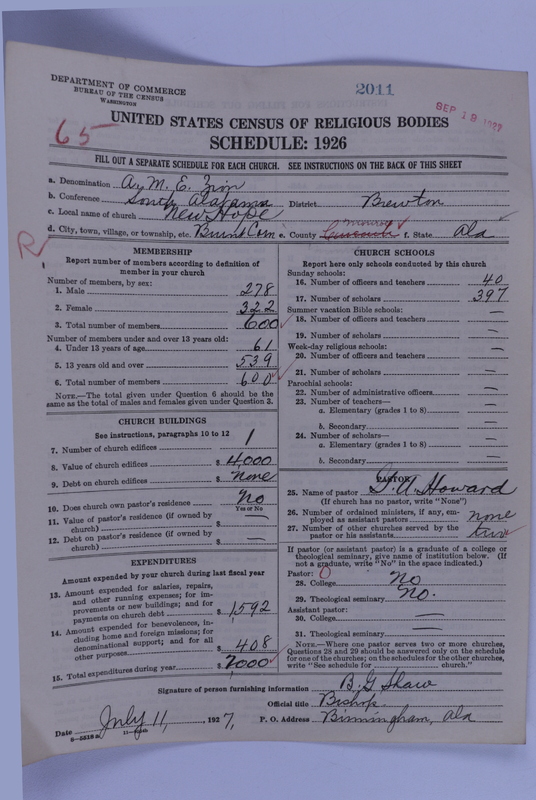 DEPARTMENT OF COMMERCE
BUREAU OF THE CENSUS
WASHINGTON
2011
SEP 19 1927
65
UNITED STATES CENSUS OF RELIGIOUS BODIES
SCHEDULE: 1926
FILL OUT A SEPARATE SCHEDULE FOR EACH CHURCH. SEE INSTRUCTIONS ON THE BACK OF THIS SHEET
a. Denomination A. M. E. Zion
b. Conference South Alabama District Brewton
c. Local name of church New Hope
d. City, town, village, or township, etc. Burnt Corn e. County Monroe f. State Ala
R
MEMBERSHIP
Report number of members according to definition of member in your church
Number of members, by sex:
1. Male 278
2. Female 322
3. Total number of members 600
Number of members under and over 13 years old:
4. Under 13 years of age 61
5. 13 years old and over 539
6. Total number of members 600
NOTE.—The total given under Question 6 should be
same as the total of males and females given under Question 3.
CHURCH BUILDINGS
See instructions, paragraphs 10 to 12
7. Number of church edifices 1
8. Value of church edifices $ 4,000
9. Debt on church edifices $ none
10. Does church own pastor's residence No
Yes or No
11. Value of pastor's residence (if owned by
church) $ —
12. Debt on pastor's residence (if owned by
church) $ —
EXPENDITURES
Amount expended by your church during last fiscal year
13. Amount expended for salaries, repairs,
and other running expenses; for im-
provements or new buildings; and for
payments on church debt $ 1592
14. Amount expended for benevolences, in-
cluding home and foreign missions; for
denominational support; and for all
other purposes $ 408
15. Total expenditures during year $ 2000
CHURCH SCHOOLS
Report here only schools conducted by this church
Sunday schools:
16. Number of officers and teachers 40
17. Number of scholars 397
Summer vacation Bible schools:
18. Number of officers and teachers —
19. Number of scholars —
Week-day religious schools:
20. Number of officers and teachers —
21. Number of scholars —
Parochial schools:
22. Number of administrative officers —
23. Number of teachers—
a. Elementary (grades 1 to 8) —
b. Secondary —
24. Number of scholars—
a. Elementary (grades 1 to 8) —
b. Secondary —
PASTOR
25. Name of pastor Howard
(If church has no pastor, write "None")
26. Number of ordained ministers, if any, em-
ployed as assistant pastors none
27. Number of other churches served by the
pastor or his assistants two
If pastor (or assistant pastor) is a graduate of a college or
theological seminary, give name of institution below. (If
not a graduate, write "No" in the space indicated.)
Pastor: 0
28. College No
29. Theological seminary No.
Assistant pastor:
30. College —
31. Theological seminary —
NOTE.—Where one pastor serves two or more churches,
Questions 28 and 29 should be answered only on the schedule
for one of the churches; on the schedules for the other churches,
write "See schedule for ________ church."
Signature of person furnishing information B. G Shaw
Official title Bishop
Date July 11, 1927, P. O. Address Birmingham, Ala